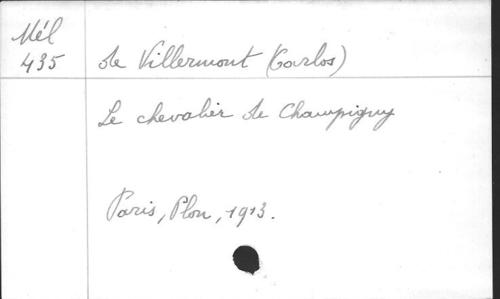 Mél
435
de Villermont (Carlos)
Le chevalier de Champigny
Paris, Plon, 1913.